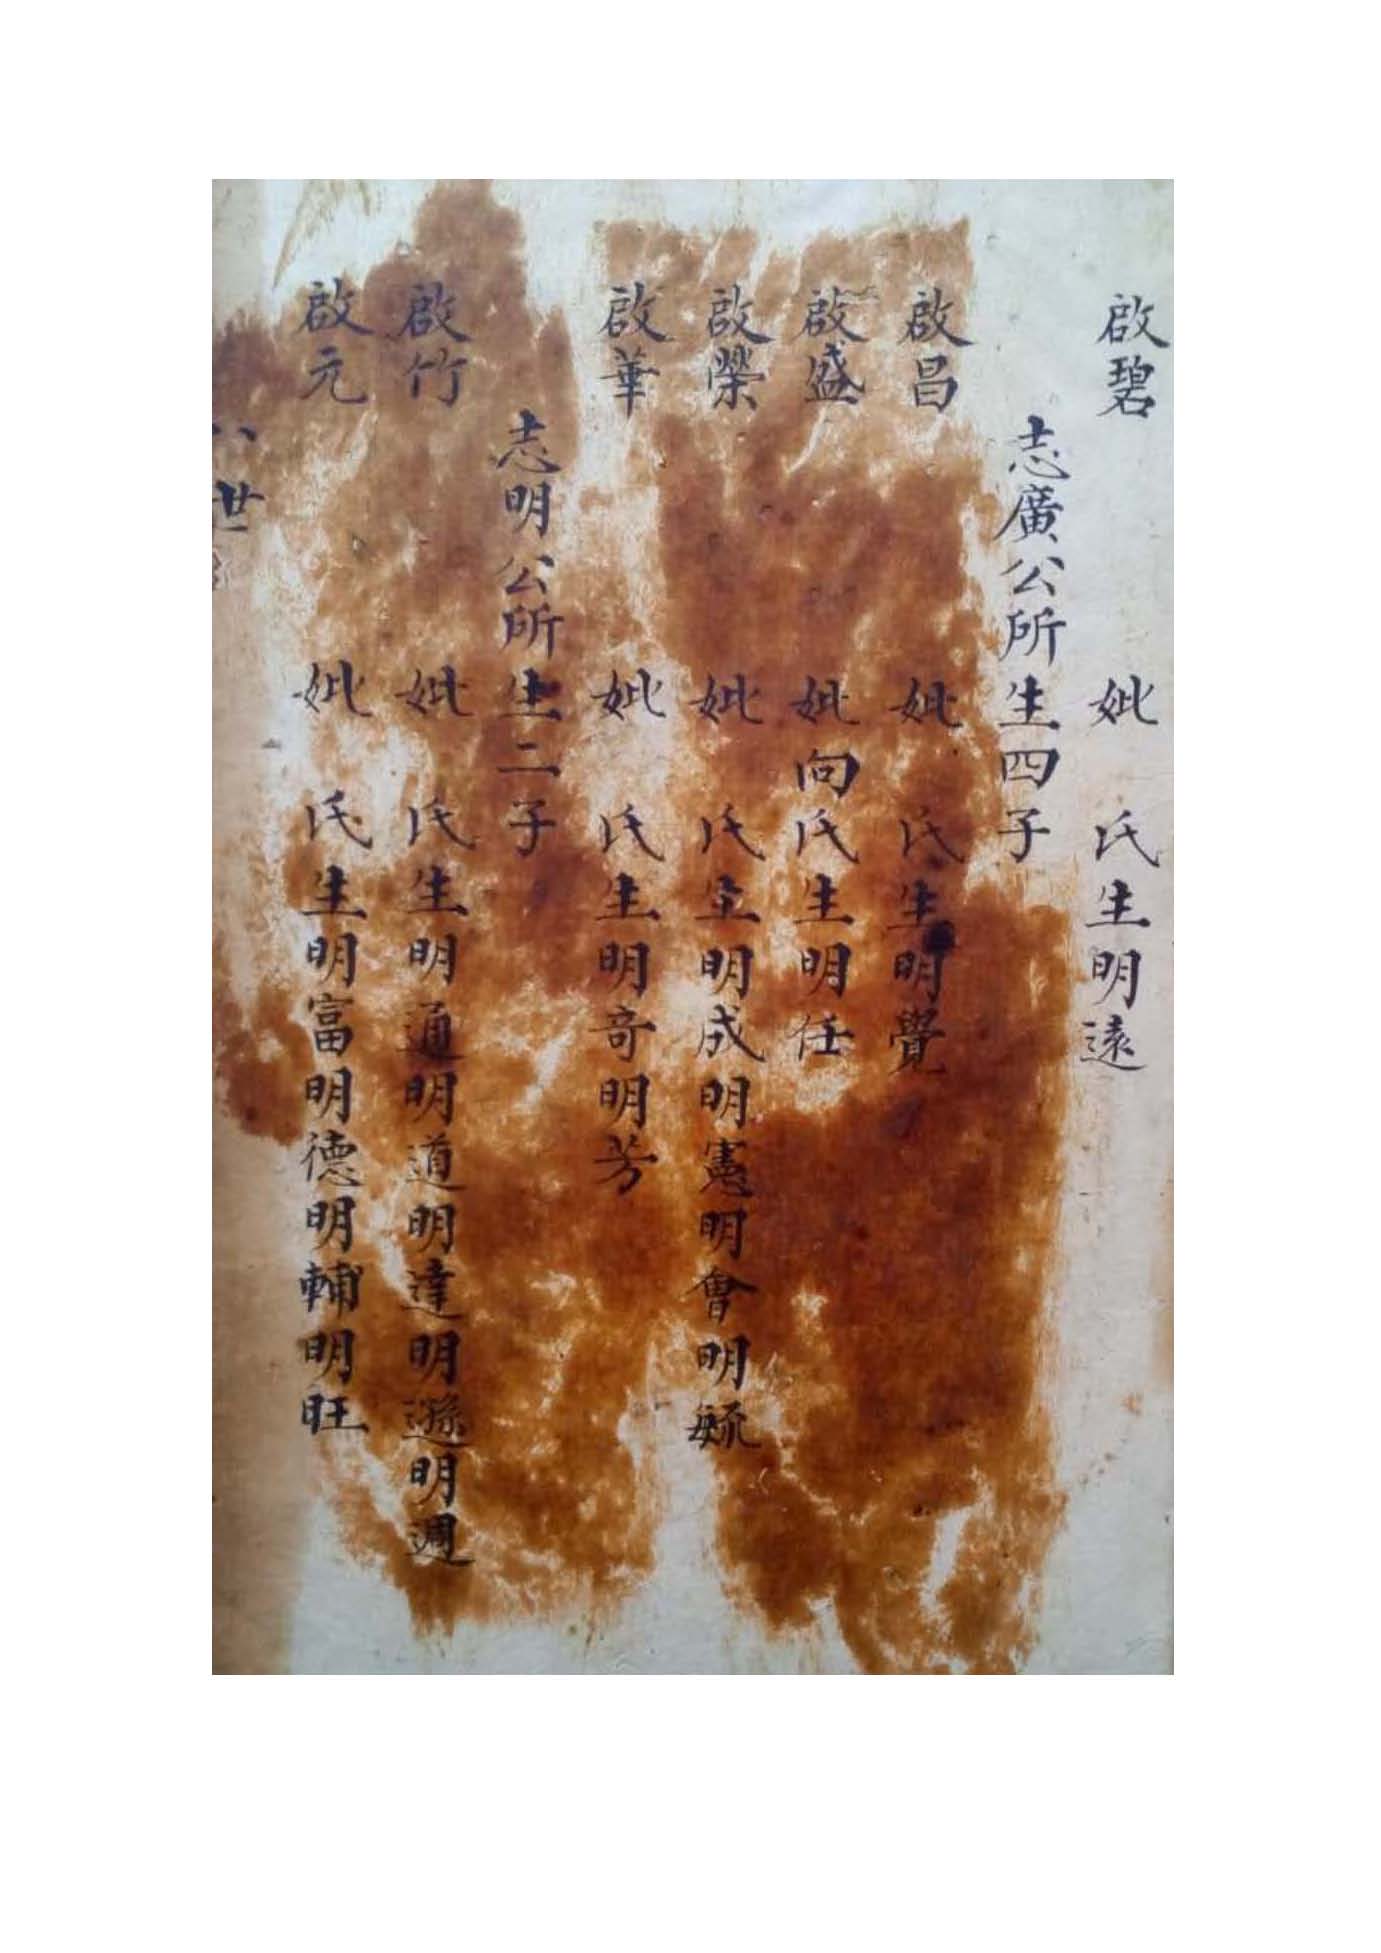 啟碧 妣 氏生明遠
志廣公所生四子
啟昌 妣 氏生明覺
啟盛 妣向氏生明任
啟榮 妣 氏生明成明憲明會明毓
啟華 妣 氏生明奇明芳
志明公所生二子
啟竹 妣 氏生明通明道明達明遜明週
啟元 妣 氏生明富明德明輔明旺
八世